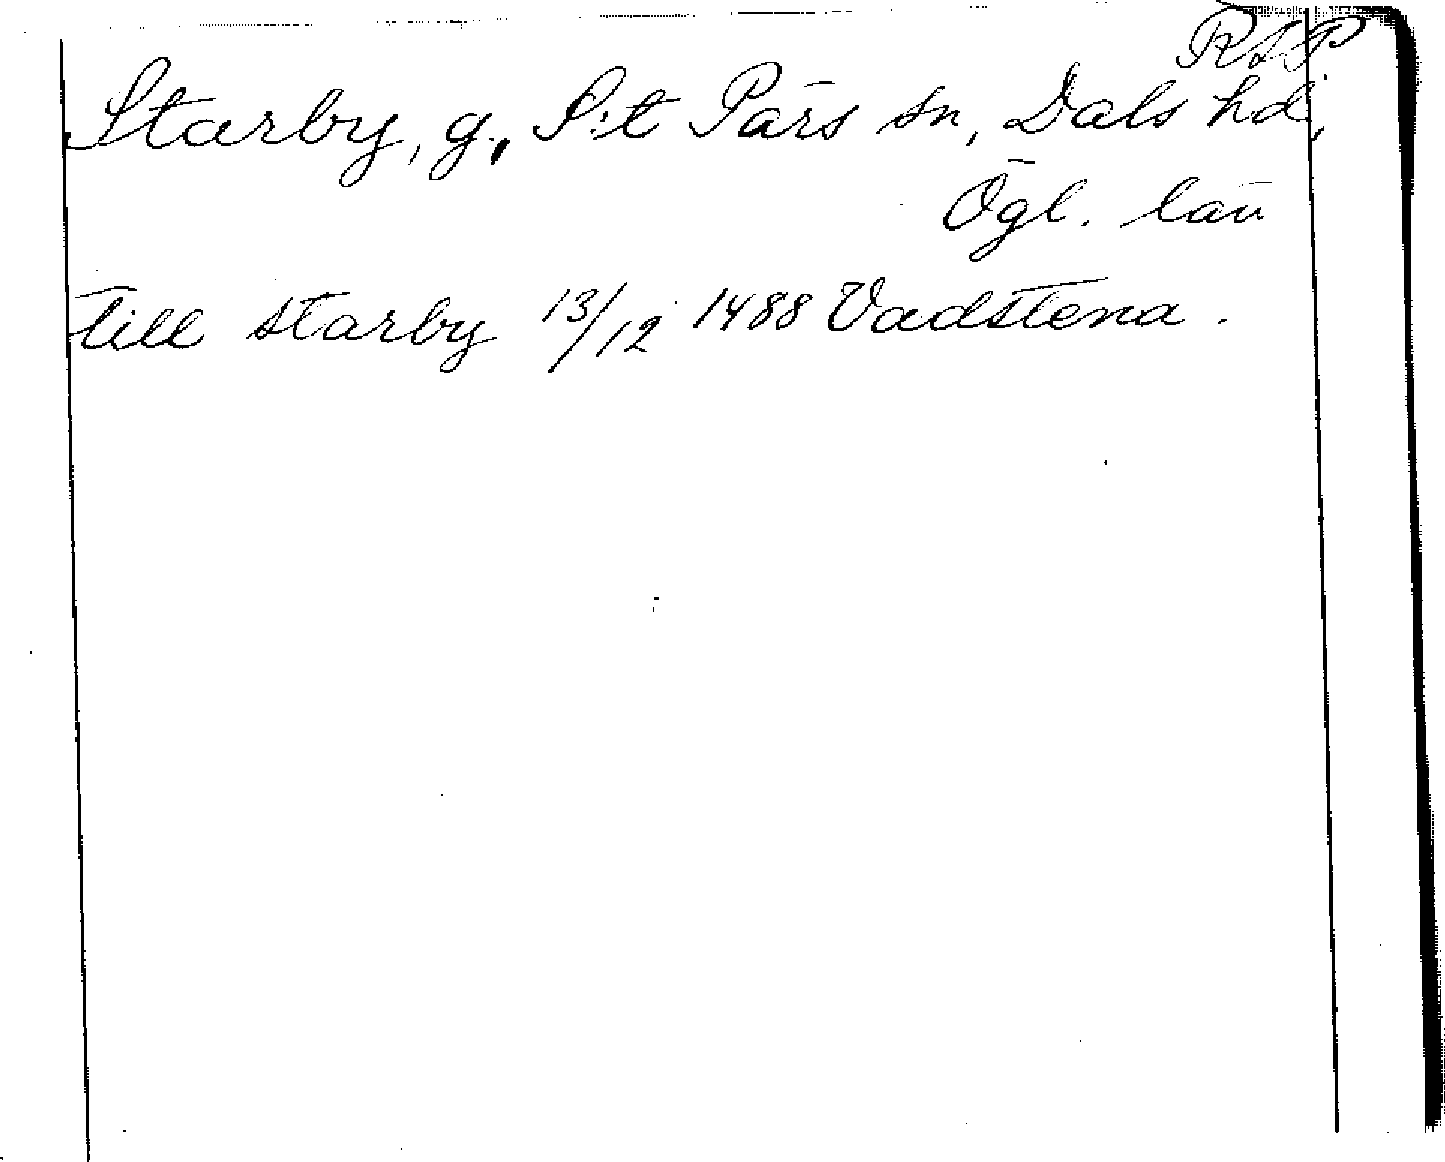 RAP
Starby, g., S:t Pärs sn, Dals hd,
Ögl. län
till starby 13/12 1488 Vadstena.